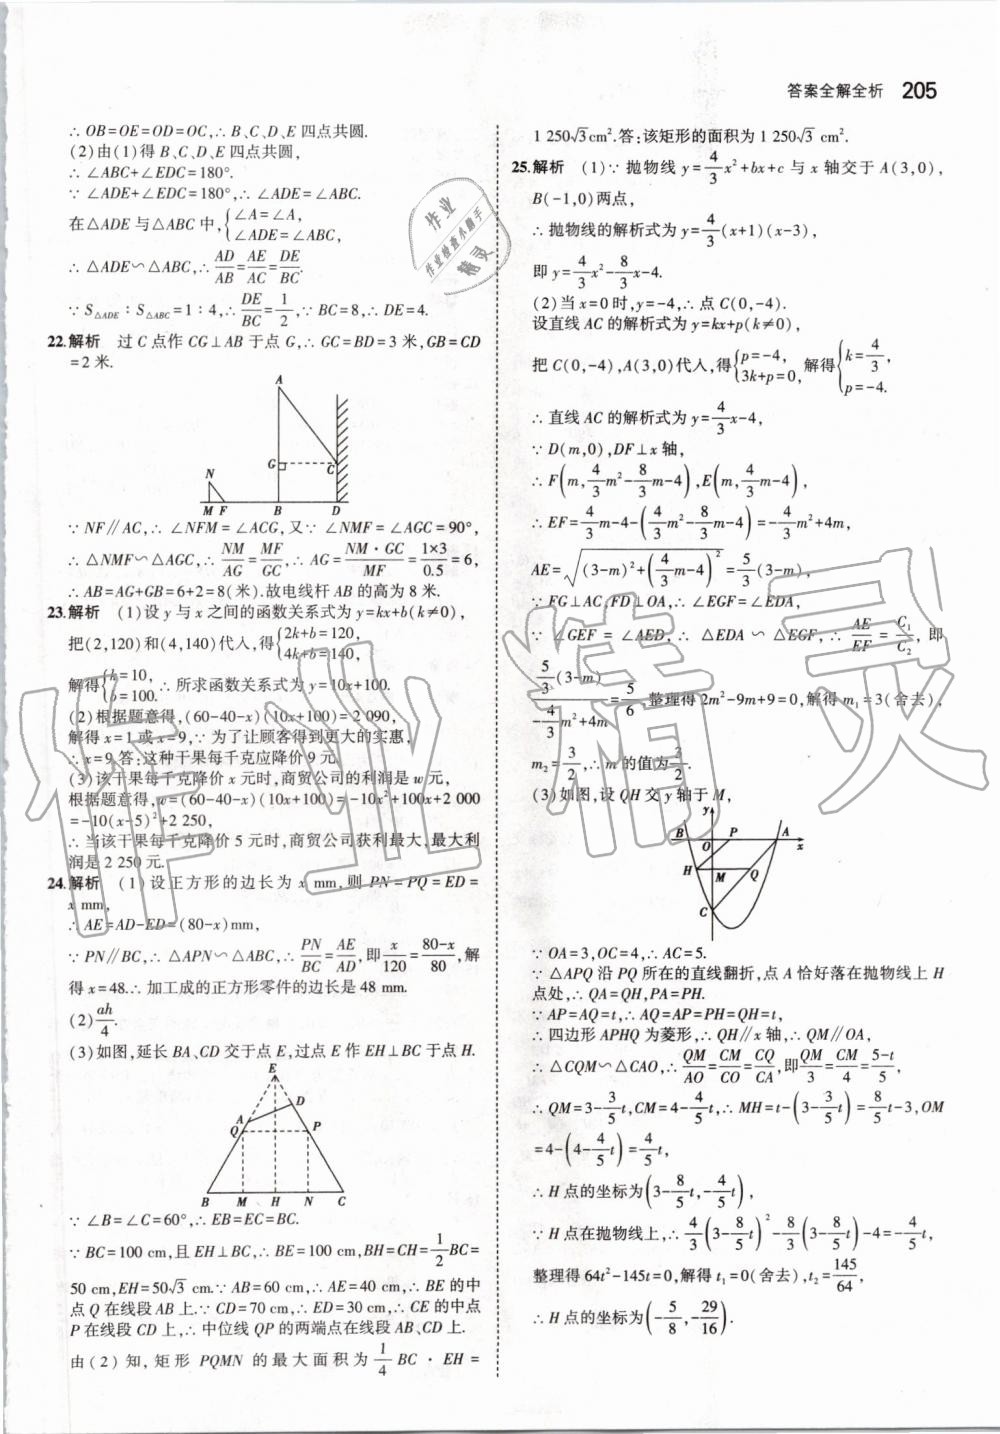 答案全解全析 205
∴ OB=OE=OD=OC,∴ B、C、D、E 四点共圆.
(2)由(1)得 B、C、D、E 四点共圆,
∴ ∠ABC+∠EDC=180°.
∵ ∠ADE+∠EDC=180°,∴ ∠ADE=∠ABC.
在△ADE 与△ABC 中,{∠A=∠A, ∠ADE=∠ABC,
∴ △ADE∽△ABC,∴ AD/AB=AE/AC=DE/BC.
∵ S△ADE∶S△ABC=1∶4,∴ DE/BC=1/2,∵ BC=8,∴ DE=4.
22.解析 过 C 点作 CG⊥AB 于点 G,∴ GC=BD=3 米,GB=CD
=2 米.
A
G C
N
M F B D
∵ NF∥AC,∴ ∠NFM=∠ACG,又∵ ∠NMF=∠AGC=90°,
∴ △NMF∽△AGC,∴ NM/AG=MF/GC,∴ AG=NM·GC/MF=1×3/0.5=6,
∴ AB=AG+GB=6+2=8(米).故电线杆 AB 的高为 8 米.
23.解析 (1)设 y 与 x 之间的函数关系式为 y=kx+b(k≠0),
把(2,120)和(4,140)代入,得{2k+b=120, 4k+b=140,
解得{k=10, b=100.∴ 所求函数关系式为 y=10x+100.
(2)根据题意得,(60-40-x)(10x+100)=2 090,
解得 x=1 或 x=9,∵ 为了让顾客得到更大的实惠,
∴ x=9.答:这种干果每千克应降价 9 元.
(3)该干果每千克降价 x 元时,商贸公司的利润是 w 元,
根据题意得,w=(60-40-x)(10x+100)=-10x²+100x+2 000
=-10(x-5)²+2 250,
∴ 当该干果每千克降价 5 元时,商贸公司获利最大,最大利
润是 2 250 元.
24.解析 (1)设正方形的边长为 x mm,则 PN=PQ=ED=
x mm,
∴ AE=AD-ED=(80-x)mm,
∵ PN∥BC,∴ △APN∽△ABC,∴ PN/BC=AE/AD,即x/120=80-x/80,解
得 x=48.∴ 加工成的正方形零件的边长是 48 mm.
(2)ah/4.
(3)如图,延长 BA、CD 交于点 E,过点 E 作 EH⊥BC 于点 H.
E
A D
Q P
B M H N C
∵ ∠B=∠C=60°,∴ EB=EC=BC.
∵ BC=100 cm,且 EH⊥BC,∴ BE=100 cm,BH=CH=1/2 BC=
50 cm,EH=50√3 cm.∵ AB=60 cm,∴ AE=40 cm,∴ BE 的中
点 Q 在线段 AB 上.∵ CD=70 cm,∴ ED=30 cm,∴ CE 的中点
P 在线段 CD 上,∴ 中位线 QP 的两端点在线段 AB、CD 上.
由(2)知,矩形 PQMN 的最大面积为 1/4 BC·EH=
1 250√3 cm².答:该矩形的面积为 1 250√3 cm².
25.解析 (1)∵ 抛物线 y=4/3 x²+bx+c 与 x 轴交于 A(3,0),
B(-1,0)两点,
∴ 抛物线的解析式为 y=4/3(x+1)(x-3),
即 y=4/3 x²-8/3 x-4.
(2)当 x=0 时,y=-4,∴ 点 C(0,-4).
设直线 AC 的解析式为 y=kx+p(k≠0),
把 C(0,-4),A(3,0)代入,得{p=-4, 3k+p=0,解得{k=4/3, p=-4.
∴ 直线 AC 的解析式为 y=4/3 x-4,
∵ D(m,0),DF⊥x 轴,
∴ F(m,4/3 m²-8/3 m-4),E(m,4/3 m-4),
∴ EF=4/3 m-4-(4/3 m²-8/3 m-4)=-4/3 m²+4m,
AE=√((3-m)²+(4/3 m-4)²)=5/3(3-m),
∵ FG⊥AC,FD⊥OA,∴ ∠EGF=∠EDA,
∵ ∠GEF=∠AED,∴ △EDA∽△EGF,∴ AE/EF=C₁/C₂,即
5/3(3-m)/(-4/3 m²+4m)=5/6,整理得 2m²-9m+9=0,解得 m₁=3(舍去),
m₂=3/2,∴ m 的值为 3/2.
(3)如图,设 QH 交 y 轴于 M,
y
B O P A x
H M Q
C
∵ OA=3,OC=4,∴ AC=5.
∵ △APQ 沿 PQ 所在的直线翻折,点 A 恰好落在抛物线上 H
点处,∴ QA=QH,PA=PH.
∵ AP=AQ=t,∴ AQ=AP=PH=QH=t,
∴ 四边形 APHQ 为菱形,∴ QH∥x 轴,∴ QM∥OA,
∴ △CQM∽△CAO,∴ QM/AO=CM/CO=CQ/CA,即QM/3=CM/4=5-t/5,
∴ QM=3-3/5 t,CM=4-4/5 t,∴ MH=t-(3-3/5 t)=8/5 t-3,OM
=4-(4-4/5 t)=4/5 t,
∴ H 点的坐标为(3-8/5 t,-4/5 t),
∵ H 点在抛物线上,∴ 4/3(3-8/5 t)²-8/3(3-8/5 t)-4=-4/5 t,
整理得 64t²-145t=0,解得 t₁=0(舍去),t₂=145/64,
∴ H 点的坐标为(-5/8,-29/16).
作业
作业检查小助手
精灵
作业精灵